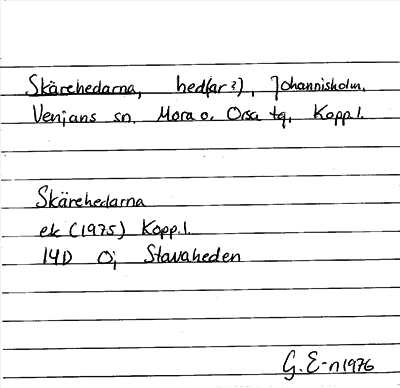 Skärehedarna, hed(ar?), Johannisholm,
Venjans sn. Mora o. Orsa tg, Kopp.l.
Skärehedarna
ek (1975) Kopp.l.
14D Öj Stavaheden
G. E-n 1976